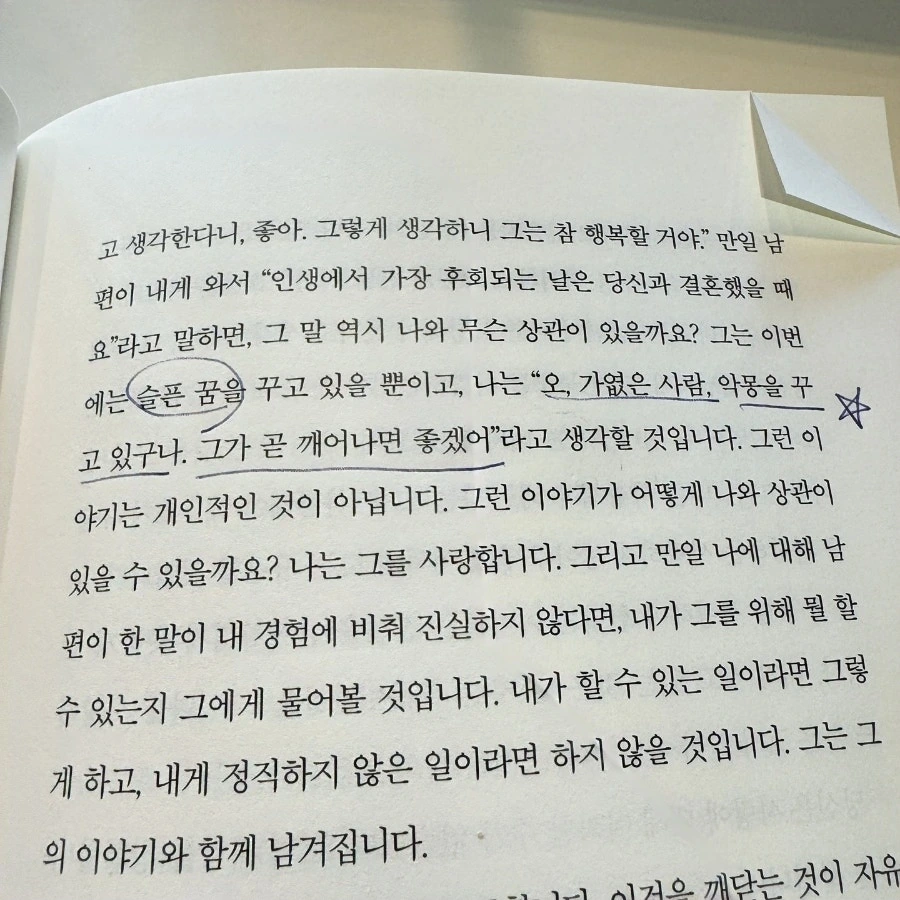 고 생각한다니, 좋아. 그렇게 생각하니 그는 참 행복할 거야.” 만일 남
편이 내게 와서 “인생에서 가장 후회되는 날은 당신과 결혼했을 때
요”라고 말하면, 그 말 역시 나와 무슨 상관이 있을까요? 그는 이번
에는 슬픈 꿈을 꾸고 있을 뿐이고, 나는 “오, 가엾은 사람, 악몽을 꾸
고 있구나. 그가 곧 깨어나면 좋겠어”라고 생각할 것입니다. 그런 이
야기는 개인적인 것이 아닙니다. 그런 이야기가 어떻게 나와 상관이
있을 수 있을까요? 나는 그를 사랑합니다. 그리고 만일 나에 대해 남
편이 한 말이 내 경험에 비춰 진실하지 않다면, 내가 그를 위해 뭘 할
수 있는지 그에게 물어볼 것입니다. 내가 할 수 있는 일이라면 그렇
게 하고, 내게 정직하지 않은 일이라면 하지 않을 것입니다. 그는 그
의 이야기와 함께 남겨집니다.
이것을 깨닫는 것이 자유